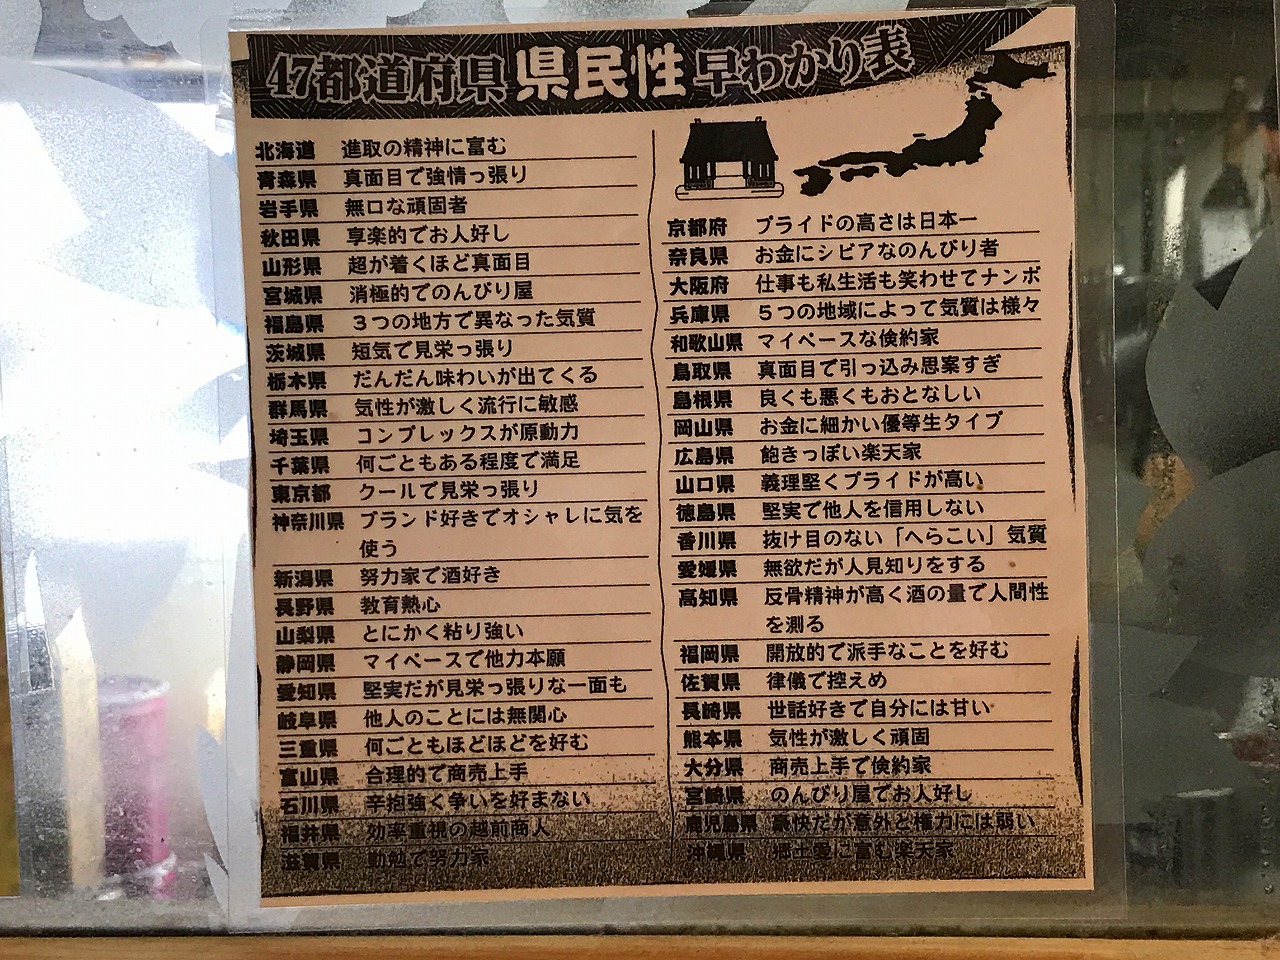 47都道府県 県民性 早わかり表
北海道 進取の精神に富む
青森県 真面目で強情っ張り
岩手県 無口な頑固者
秋田県 享楽的でお人好し
山形県 超が着くほど真面目
宮城県 消極的でのんびり屋
福島県 3つの地方で異なった気質
茨城県 短気で見栄っ張り
栃木県 だんだん味わいが出てくる
群馬県 気性が激しく流行に敏感
埼玉県 コンプレックスが原動力
千葉県 何ごともある程度で満足
東京都 クールで見栄っ張り
神奈川県 ブランド好きでオシャレに気を
使う
新潟県 努力家で酒好き
長野県 教育熱心
山梨県 とにかく粘り強い
静岡県 マイペースで他力本願
愛知県 堅実だが見栄っ張りな一面も
岐阜県 他人のことには無関心
三重県 何ごともほどほどを好む
富山県 合理的で商売上手
石川県 辛抱強く争いを好まない
福井県 効率重視の越前商人
滋賀県 勤勉で努力家
京都府 プライドの高さは日本一
奈良県 お金にシビアなのんびり者
大阪府 仕事も私生活も笑わせてナンボ
兵庫県 5つの地域によって気質は様々
和歌山県 マイペースな倹約家
鳥取県 真面目で引っ込み思案すぎ
島根県 良くも悪くもおとなしい
岡山県 お金に細かい優等生タイプ
広島県 飽きっぽい楽天家
山口県 義理堅くプライドが高い
徳島県 堅実で他人を信用しない
香川県 抜け目のない「へらこい」気質
愛媛県 無欲だが人見知りをする
高知県 反骨精神が高く酒の量で人間性
を測る
福岡県 開放的で派手なことを好む
佐賀県 律儀で控えめ
長崎県 世話好きで自分には甘い
熊本県 気性が激しく頑固
大分県 商売上手で倹約家
宮崎県 のんびり屋でお人好し
鹿児島県 豪快だが意外と権力には弱い
沖縄県 郷土愛に富む楽天家